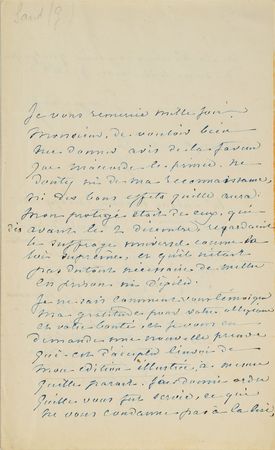 Sand (G)
Je vous remercie mille fois,
Monsieur, de vouloir bien
me donner avis de la faveur
que m'accorde le prince. ne
doutez ni de ma reconnaissance,
ni des bons effets qu'elle aura.
Mon protégé était de ceux, qui
dès avant le 2 décembre regardaient
le suffrage universel comme la
loi suprême, et qu'il n'était
pas du tout nécessaire de mettre
en prison ni
Je ne sais comment vous témoigner
ma gratitude pour votre obligeance
et votre bonté, et je vous en
demande une nouvelle preuve
qui est d'accepter l'envoi de
mon édition illustrée, à mesure
qu'elle parait. J'ai donné ordre
qu'elle vous fut servie, ce qui
ne vous condamne pas à la lire,